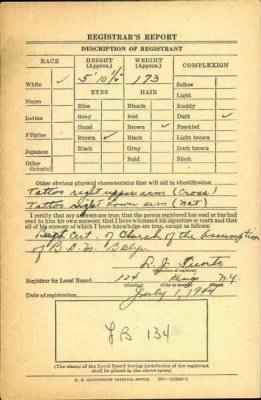 REGISTRAR'S REPORT
DESCRIPTION OF REGISTRANT
RACE
HEIGHT
(Approx.)
WEIGHT
(Approx.)
COMPLEXION
White ✓
5' 10 ½"
173
Sallow
EYES
HAIR
Light
Negro
Blue
Blonde
Ruddy
Indian
Gray
Red
Dark ✓
Hazel
Brown ✓
Freckled
Filipino
Brown ✓
Black
Light brown
Japanese
Black
Gray
Dark brown
Other
Oriental
Bald
Black
Other obvious physical characteristics that will aid in identification
Tattoo right upper arm (Cross)
Tattoo right lower arm (Nat)
I certify that my answers are true; that the person registered has read or has had
read to him his own answers; that I have witnessed his signature or mark and that
all of his answers of which I have knowledge are true, except as follows:
Cert. of Church of the Assumption
of B.V.M.
(Signature of registrar)
Registrar for Local Board 134 Kings NY
Date of registration July 1, 1944
LB 134
(The stamp of the Local Board having jurisdiction of the registrant
shall be placed in the above space)
U. S. GOVERNMENT PRINTING OFFICE